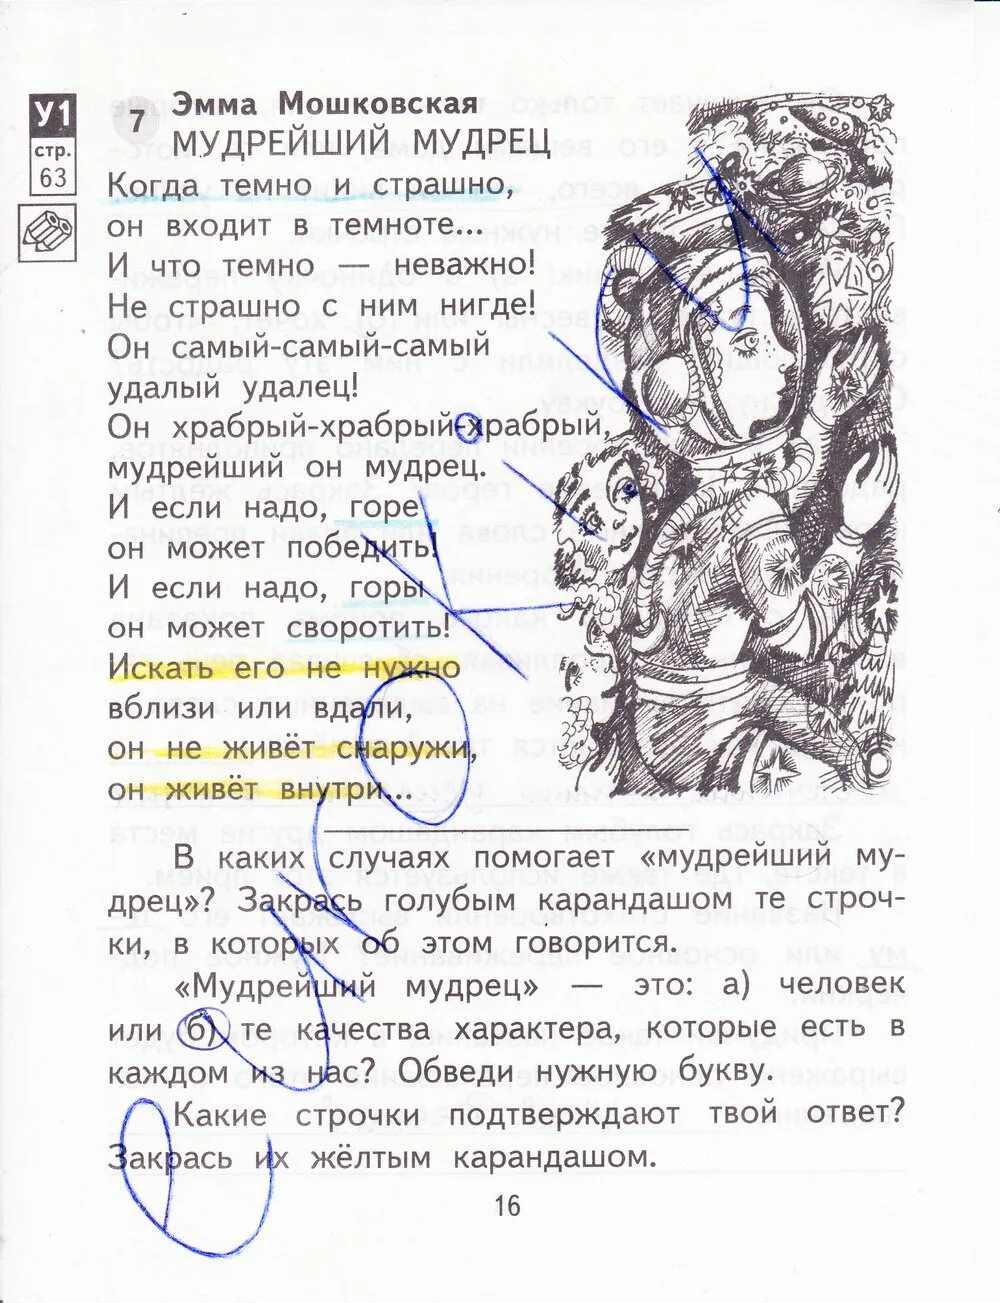 У1
стр.
63
7
Эмма Мошковская
МУДРЕЙШИЙ МУДРЕЦ
Когда темно и страшно,
он входит в темноте...
И что темно — неважно!
Не страшно с ним нигде!
Он самый-самый-самый
удалый удалец!
Он храбрый-храбрый-храбрый,
мудрейший он мудрец.
И если надо, горе
он может победить!
И если надо, горы
он может своротить!
Искать его не нужно
вблизи или вдали,
он не живёт снаружи,
он живёт внутри...
В каких случаях помогает «мудрейший му-
дрец»? Закрась голубым карандашом те строч-
ки, в которых об этом говорится.
«Мудрейший мудрец» — это: а) человек
или б) те качества характера, которые есть в
каждом из нас? Обведи нужную букву.
Какие строчки подтверждают твой ответ?
Закрась их жёлтым карандашом.
16